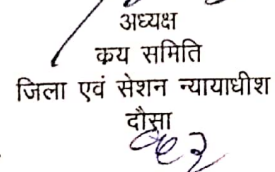 अध्यक्ष
क्रय समिति
जिला एवं सेशन न्यायाधीश
दौसा